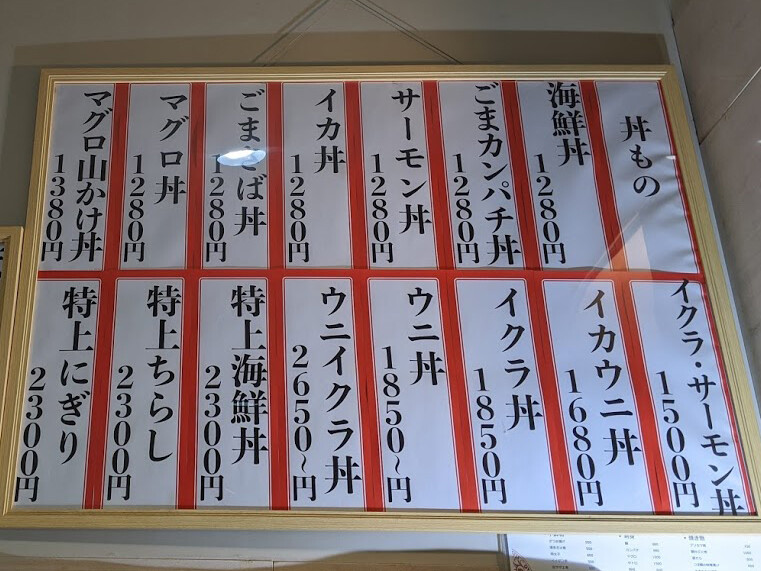 丼もの
海鮮丼
1280円
ごまカンパチ丼
1280円
サーモン丼
1280円
イカ丼
1280円
ごまさば丼
1280円
マグロ丼
1280円
マグロ山かけ丼
1380円
イクラ・サーモン丼
1500円
イカウニ丼
1680円
イクラ丼
1850円
ウニ丼
1850〜円
ウニイクラ丼
2650〜円
特上海鮮丼
2300円
特上ちらし
2300円
特上にぎり
2300円